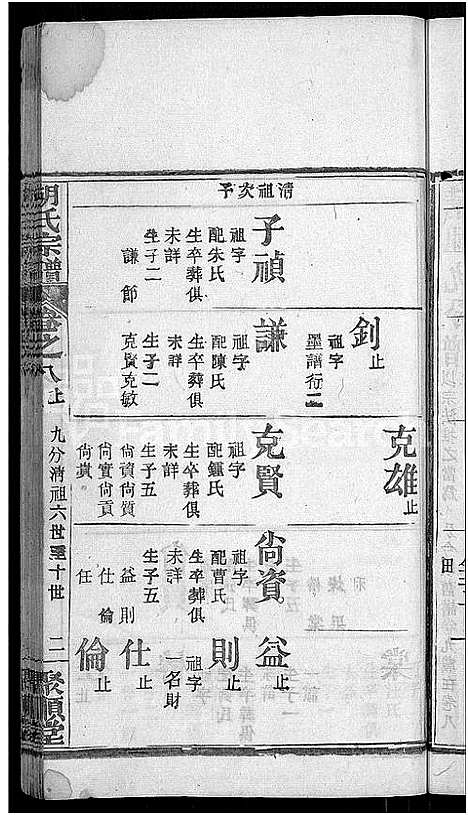 清祖次子
子禎
祖字
配朱氏
生卒葬俱
未詳
生子二
謙 節
釗止
祖字
墨譜衍二
謙
祖字
配陳氏
生卒葬俱
未詳
生子二
克賢克敏
克雄止
克賢
祖字
配鍾氏
生卒葬俱
未詳
生子五
尙資尙質
尙實尙貢
尙貴
尙資
祖字
配曹氏
生卒葬俱
未詳
生子五
益則
仕倫
任
益止
則止
祖字
一名財
仕止
倫止
胡氏宗譜
卷之八上
九分清祖六世至十世
二
聚順堂